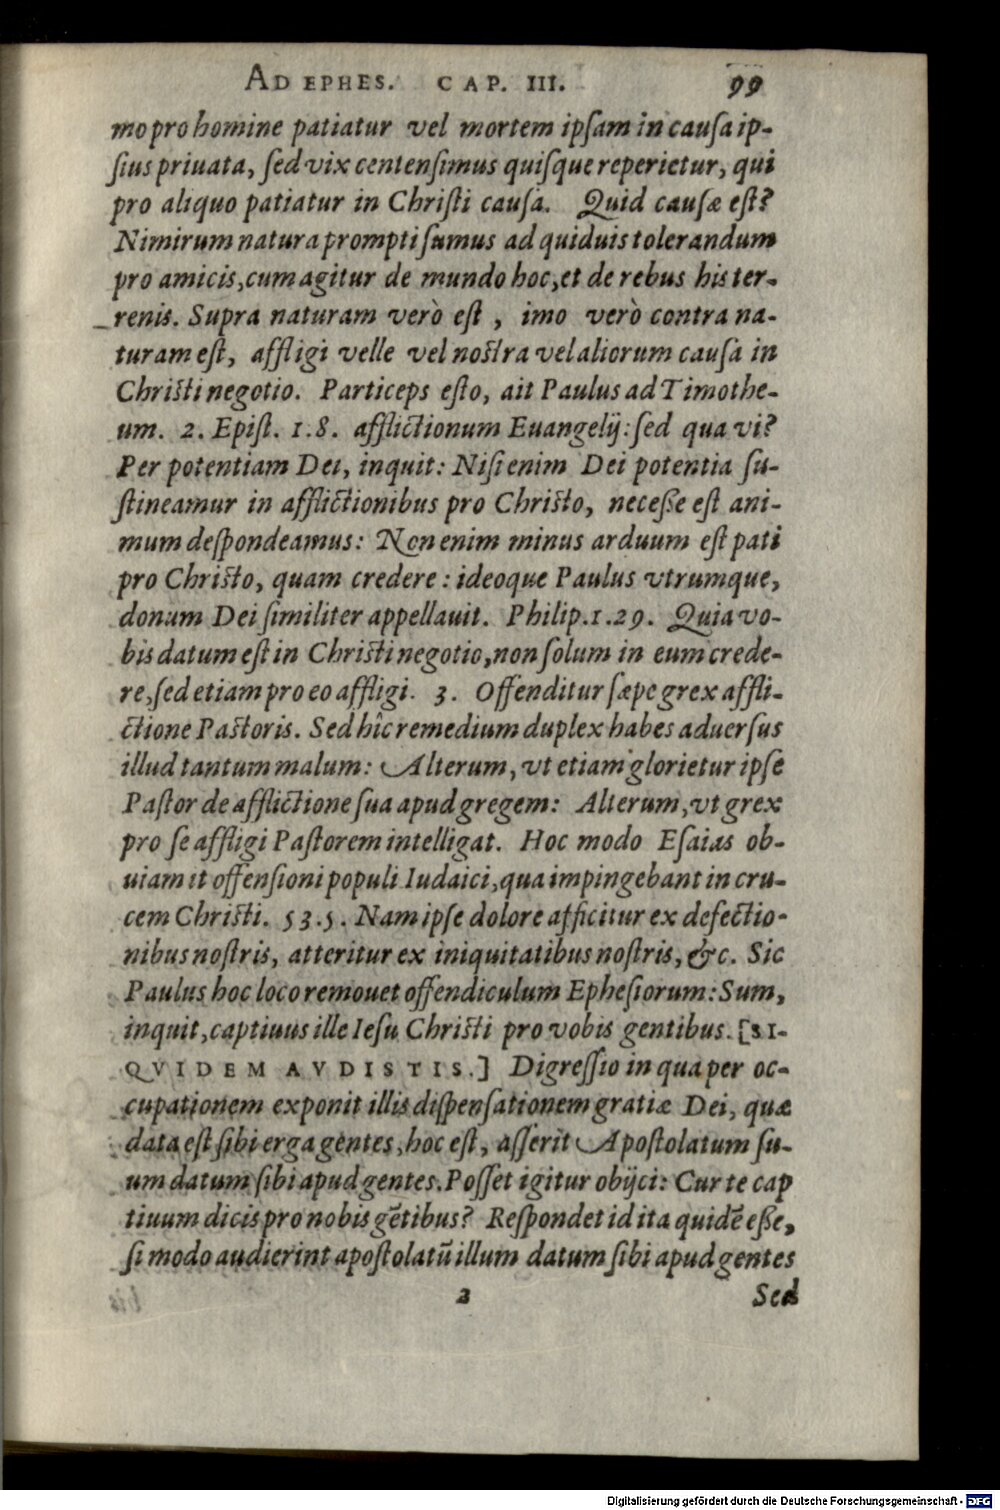 AD EPHES. CAP. III. 99
mo pro homine patiatur vel mortem ipſam in cauſa ip-
ſius priuata, ſed vix centenſimus quiſque reperietur, qui
pro aliquo patiatur in Chriſti cauſa. Quid cauſæ eſt?
Nimirum natura prompti ſumus ad quiduis tolerandum
pro amicis, cum agitur de mundo hoc, et de rebus his ter-
renis. Supra naturam verò eſt, imo verò contra na-
turam eſt, affligi velle vel noſtra vel aliorum cauſa in
Chriſti negotio. Particeps eſto, ait Paulus ad Timothe-
um. 2. Epiſt. 1.8. afflictionum Euangelij: ſed qua vi?
Per potentiam Dei, inquit: Niſi enim Dei potentia ſu-
ſtineamur in afflictionibus pro Chriſto, neceße eſt ani-
mum deſpondeamus: Non enim minus arduum eſt pati
pro Chriſto, quam credere: ideoque Paulus vtrumque,
donum Dei ſimiliter appellauit. Philip. 1.29. Quia vo-
bis datum eſt in Chriſti negotio, non ſolum in eum crede-
re, ſed etiam pro eo affligi. 3. Offenditur ſæpe grex affli-
ctione Paſtoris. Sed hîc remedium duplex habes aduerſus
illud tantum malum: Alterum, vt etiam glorietur ipſe
Paſtor de afflictione ſua apud gregem: Alterum, vt grex
pro ſe affligi Paſtorem intelligat. Hoc modo Eſaias ob-
uiam it offenſioni populi Iudaici, qua impingebant in cru-
cem Chriſti. 53.5. Nam ipſe dolore afficitur ex defectio-
nibus noſtris, atteritur ex iniquitatibus noſtris, &c. Sic
Paulus hoc loco remouet offendiculum Epheſiorum: Sum,
inquit, captiuus ille Ieſu Chriſti pro vobis gentibus. [SI-
QVIDEM AVDISTIS.] Digreſſio in qua per oc-
cupationem exponit illis diſpenſationem gratiæ Dei, quæ
data eſt ſibi erga gentes, hoc eſt, aſſerit Apoſtolatum ſu-
um datum ſibi apud gentes. Poſſet igitur obijci: Cur te cap
tiuum dicis pro nobis gẽtibus? Reſpondet id ita quidẽ eße,
ſi modo audierint apoſtolatũ illum datum ſibi apud gentes
2 Sed
Digitalisierung gefördert durch die Deutsche Forschungsgemeinschaft - DFG